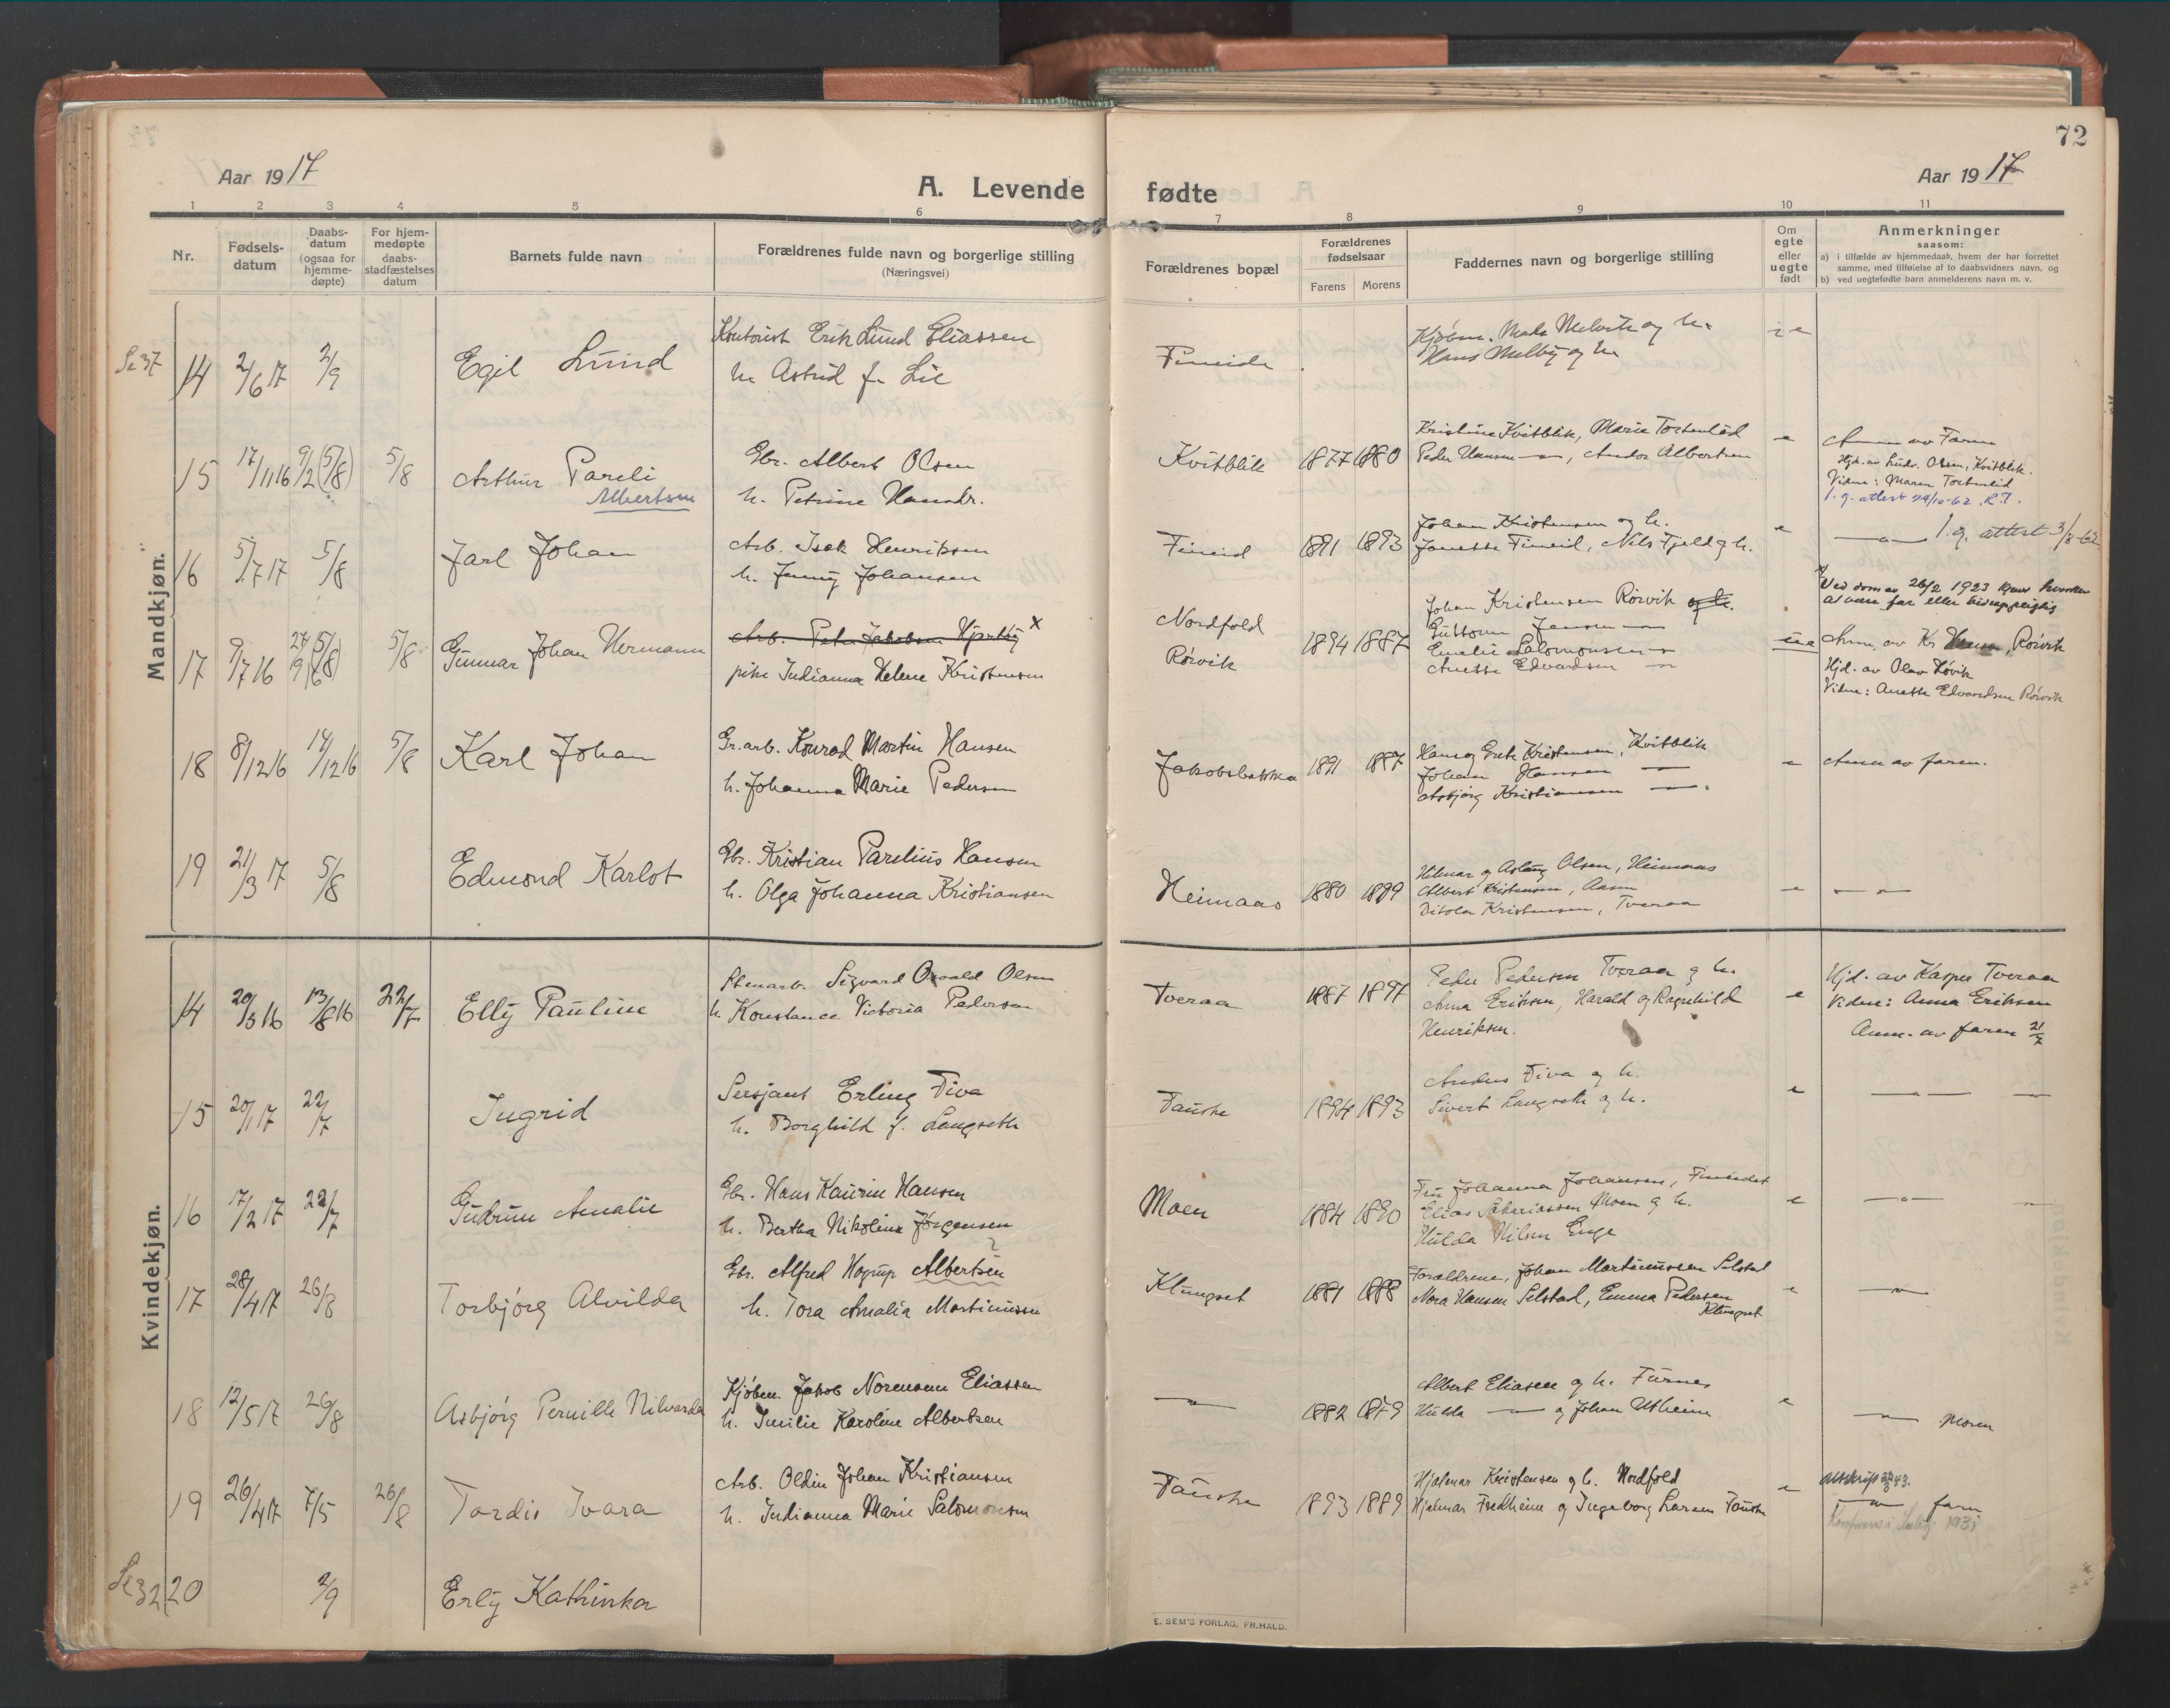 72
Aar 1917
A. Levende fødte
Aar 1917
1 2 3 4 5 6 7 8 9 10 11
Nr.
Fødsels-
datum
Daabs-
datum
(ogsaa for
hjemme-
døpte)
For hjem-
medøpte
daabs-
stadfæstelses
datum
Barnets fulde navn
Forældrenes fulde navn og borgerlige stilling
(Næringsvei)
Forældrenes bopæl
Forældrenes
fødselsaar
Farens Morens
Faddernes navn og borgerlige stilling
Om
egte
eller
uegte
født
Anmerkninger
saasom:
a) i tilfælde av hjemmedaab, hvem der har forrettet
samme, med tilføielse af to daabsvidners navn, og
b) ved uegtefødte barn anmelderens navn m. v.
Mandkjøn.
Se 37 14 2/6 17 2/9 Egil Lund
Kontorist Erik Lund Eliassen
h. Astrid f. Lie
Fineide
Hans Melby og h.
15 17/11 16 9/2 (5/8) 5/8 Arthur Pareli
Albertsen
Gbr. Albert Olsen
h. Petrine Hansdr.
Kvitblik 1877 1880
Kristine Kvitblik, Marie Tortenlid
Peder Hansen — " —, Andor Albertsen
e
Anm. av Faren
Hjd. av Ludv. Olsen, Kvitblik.
Vidne: Maren Tortenlid
l. g. attest 24/10-62 R.T.
16 5/7 17 5/8 Jarl Johan
Arb. Isak Henriksen
h. Jenny Johansen
Fineid 1891 1893
Johan Kristensen og h.
Janette Fineid, Nils Fjeld og h.
e
— " — l. g. attest 3/8-62
17 9/7 16 5/8 Gunnar Johan Hermann
Arb. Peter Jakobsen x
pike Indianna Helene Kristensen
Nordfold
Rørvik
1894 1887
Johan Kristensen Rørvik og h.
Guttorm Jensen — " —
Emelie Salomonsen — " —
Anette Edvardsen — " —
x) Ved dom av 26/2 1923
at være far eller bidragspligtig
Anm. av Kr. Rørvik
Hjd. av Olav Løvik
Vidne: Anette Edvardsen Rørvik
18 8/12 16 14/12 16 5/8 Karl Johan
Gr.arb. Konrad Martin Hansen
h. Johanna Marie Pedersen
Jakobsbakken 1891 1887
Hans og Grete Kristensen, Kvitblik
Johan Hansen —
Asbjørg Kristiansen — " —
e
Anm av faren.
19 21/3 17 5/8 Edmond Karlot
Gbr. Kristian Parelius Hansen
h. Olga Johanna Kristiansen
Heimaas 1880 1889
Hilmar og Aslaug Olsen, Heimaas
Albert Kristensen, Aasen
Kristensen, Tveraa
e — " —
Kvindekjøn.
14 20/5 16 13/8 16 22/7 Elly Pauline
Stenarb. Sigvard Osvald Olsen
h. Konstance Victoria Pedersen
Tveraa 1887 1897
Peder Pedersen Tveraa og h.
Anna Eriksen, Harald og Ragnhild
Henriksen.
e
Hjd. av Kasper Tveraa
Vidne: Anna Eriksen
Anm. av faren 21/7
15 20/1 17 22/7 Ingrid
Sersjant Erling Fiva
h. Borghild f. Langseth
Fauske 1894 1893
Anders Fiva og h.
Sivert Langseth og h.
e — " — —
16 17/2 17 22/7 Gudrun Amalie
Gbr. Hans Kaurin Hansen
h. Bertha Nikoline Jørgensen
Moen 1884 1890
Fru Johanna Johansen, Fineidet
Elias Sakariassen Moen og h.
Hulda Nilsen Enge
e — " — "
17 28/4 17 26/8 Torbjørg Alvilda
Gbr. Alfred Hagrup Albertsen ?
h. Tora Amalia Martinussen
Klungset 1881 1888
Forældrene, Johan Martinussen Selstad
Nora Hansen Selstad, Emma Pedersen
Klungset
e — " —
18 12/5 17 26/8 Asbjørg Pernille Nilvarda
Kjøbm. Jakob Normann Eliassen
h. Emilie Karoline Albertsen
— " — 1882 1879
Albert Eliasen og h. Furnes
Hulda — " — og Johan Utheim
e — " — Moren
19 26/4 17 7/5 26/8 Tordis Ivara
Arb. Oldin Johan Kristiansen
h. Indianna Marie Salomonsen
Fauske 1893 1889
Hjalmar Kristensen og h. Nordfold
Hjalmar Fredheim og Ingeborg Larsen Fauske
e
Utskrift 43.
— " — faren
1931
Se 32 20 2/9 Erly Kathinka
E. SEM'S FORLAG, FR.HALD.